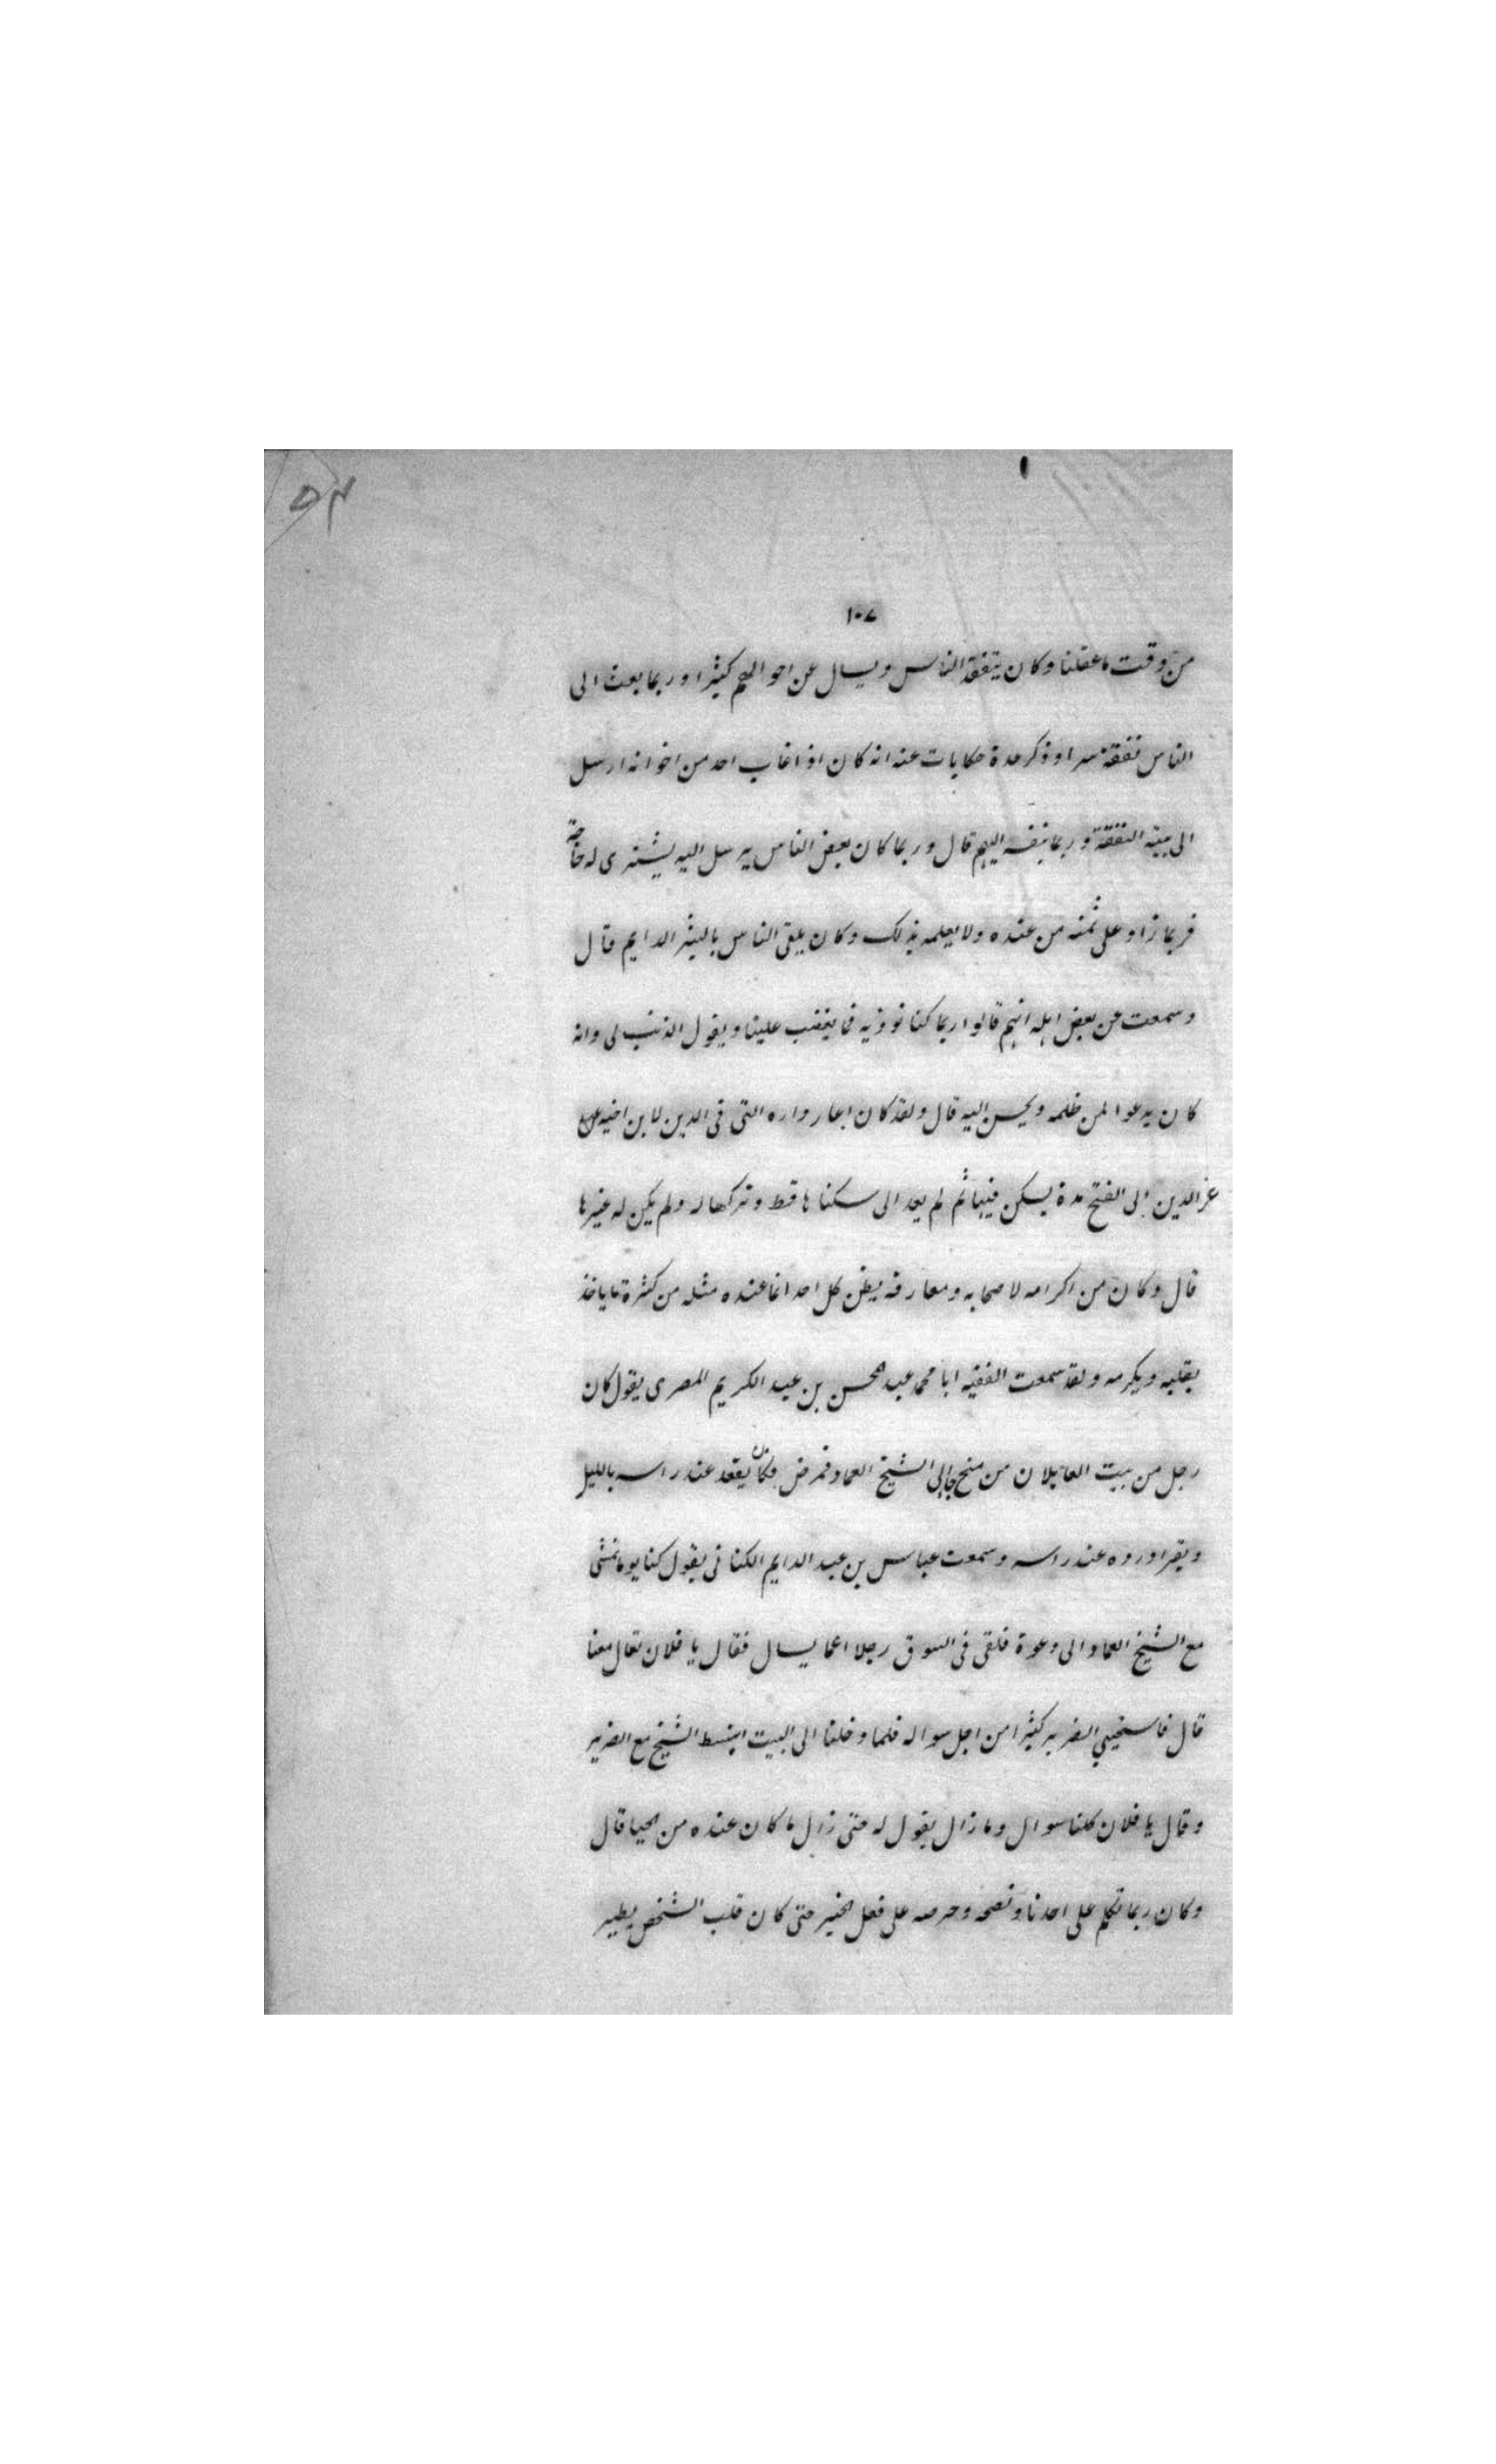 ١٠٧
من وقت ما عقلنا وكان يتفقد الناس ويسال عن احوالهم كثيرا وربما بعث الى
الناس نفقة سرا وذكر عدة حكايات عنه انه كان اذا غاب احد من اخوانه ارسل
الى بيته النفقة وربما بنفسه اليهم قال وربما كان بعض الناس يرسل اليه يشترى له حاجة
فربما زاد على ثمنه من عنده ولا يعلمه بذلك وكان يلقى الناس بالبشر الدايم قال
وسمعت عن بعض اهله انهم قالوا ربما كنا نوذيه فما يغضب علينا ويقول الذنب لى وانه
كان يدعوا لمن ظلمه ويحسن اليه قال ولقد كان اعار داره التى فى الدين لابن اخيه
عز الدين ابى الفتح مدة يسكن فيها ثم لم يعد الى سكناها قط وتركها له ولم يكن له غيرها
قال وكان من اكرامه لاصحابه ومعارفه يظن كل احد انما عنده مثله من كثرة ما ياخذ
بقلبه ويكرمه ولقد سمعت الفقيه ابا محمد عبد المحسن بن عبد الكريم المصرى يقول كان
رجل من بيت من منبج جا الى الشيخ العماد فمرض فكان يقعد عند راسه بالليل
ويقرا ورده عند راسه وسمعت عباس بن عبد الدايم الكنانى يقول كنا يوما نمشى
مع الشيخ العماد الى دعوة فلقى فى السوق رجلا اعما يسال فقال يا فلان تعال معنا
قال فاستحيى الضرير كثيرا من اجل سواله فلما دخلنا الى البيت انبسط الشيخ مع الضرير
وقال يا فلان كلنا سوال وما زال يقول له حتى زال ما كان عنده من الحيا قال
وكان ربما تكلم على احدنا ونصحه وحرصه على فعل الخير حتى كان قلب الشخص يطير